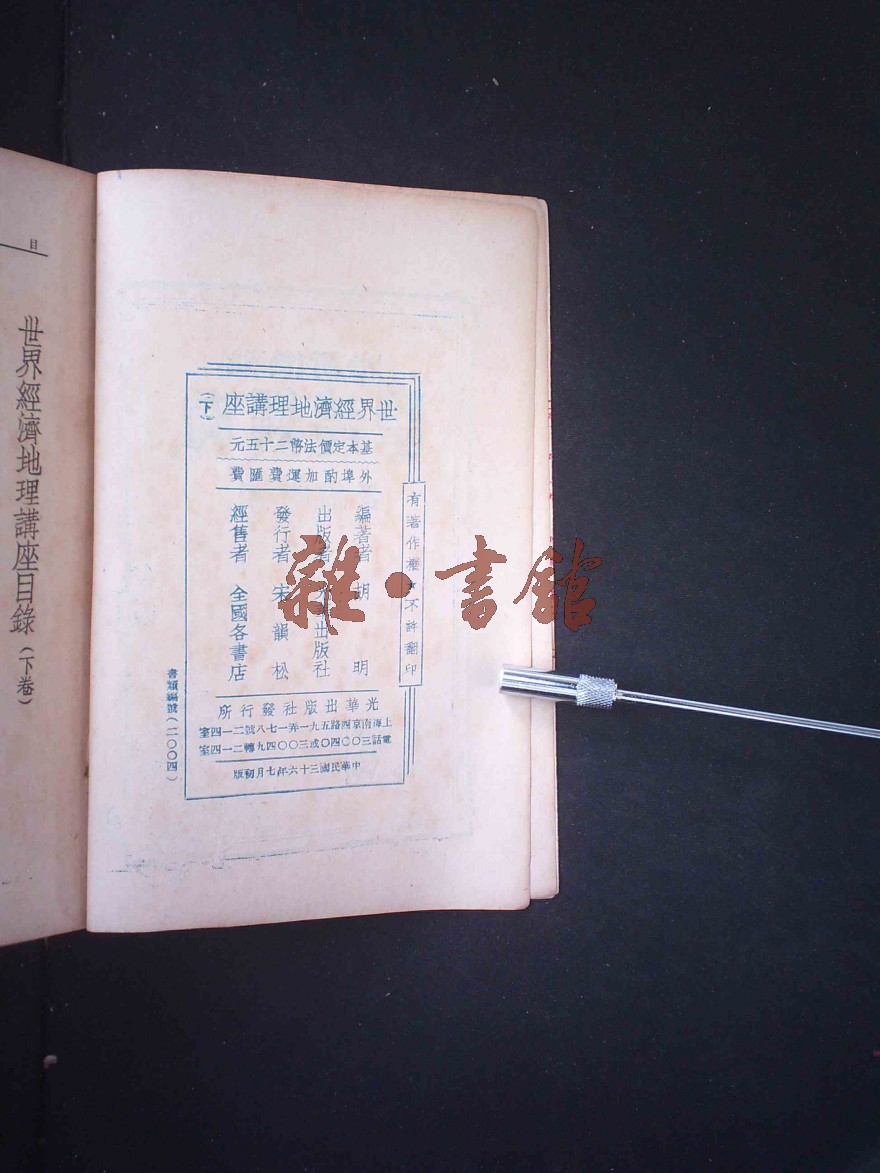 目
世界經濟地理講座目錄(下卷)
世界經濟地理講座(下)
基本定價法幣二十五元
外埠酌加運費匯費
編著者 胡明
出版者 光華出版社
發行者 宋韻松
經售者 全國各書店
光華出版社發行所
上海南京西路五九一弄一七八號二一四室
電話三〇〇四〇或三〇〇四九轉二一四室
中華民國三十六年七月初版
有著作權★不許翻印
書類編號(二〇〇四)
雜·書館